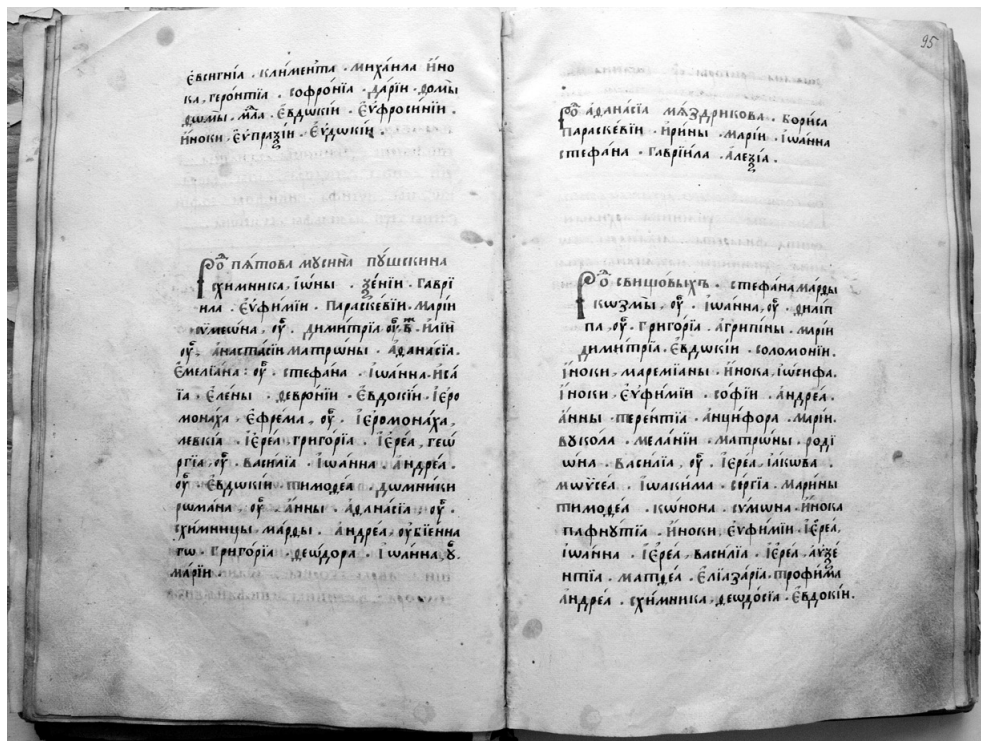 є҆всигнїа . климента . михаила и҆но
ка, геронтїа . софронїа . дарїи . домы
домы . мл҃а . є҆вдокїи . є҆ѵфросинїи .
и҆ноки . є҆ѵпраѯїи . є҆ѵдокїи .
Рѡ҃ пѧтова мусина пушскина
схимника, їѡны . ѯенїи . гаврї
ила . є҆ѵфимїи . параскевїи . марїи
сѵмеѡна, ѹ҃б . димитрїа ѹ҃б . илїи
ѹ҃б . анастасїи матрѡны . аѳанасїа .
є҆мелїана : ѹ҃б . стефана . їѡанна . иса
їа . є҆лены . ѳевронїи . є҆вдокїи . їеро
монаха . є҆фрема, ѹ҃б . їеромонаха,
левкїа . їереа . григорїа . їереа, геѡ
ргїа . ѹ҃б . василїа . їѡанна . андреа .
ѹ҃б . є҆вдѡкїи . тимоѳеа . дѡмники
рѡмана . ѹ҃б . анны . аѳанасїа . ѹ҃б .
схимницы . марѳы . андреа, ѹбїенна
гѡ . григорїа . ѳеѡдора . їѡанна, ѹ҃б .
марїи .
95
Рѡ҃ аѳанасїа мѧздрикова . бориса
параскевїи . ирины . марїи . їѡанна
стефана . гаврїила . алеѯїа .
Рѡ҃ свишовыхъ . стефана марѳы
козмы, ѹ҃б . їѡанна, ѹ҃б . филїп
па, ѹ҃б . григорїа . агрипины . марїи
димитрїа . є҆вдѡкїи . соломонїи .
їноки . маремїаны . и҆нока, їѡсифа .
їноки . є҆ѵфимїи . софїи . андреа .
анны . терентїа . анцифора . марїи .
вукола . меланїи . матрѡны . родї
ѡна . василїа, ѹ҃б . їереа, їакѡва .
мѡѷсеа . їѡакима . сѳргїа . марины
тимоѳеа . конона . сѵмѡна . и҆нока
пафнутїа . и҆ноки, є҆ѵфимїи . їереа,
їѡанна . їереа, василїа . їереа, аѵѯе
нтїа . матѳеа . є҆лїазарїа . трофима
андреа . схимника, ѳеѡдосїа . є҆вдокїи .